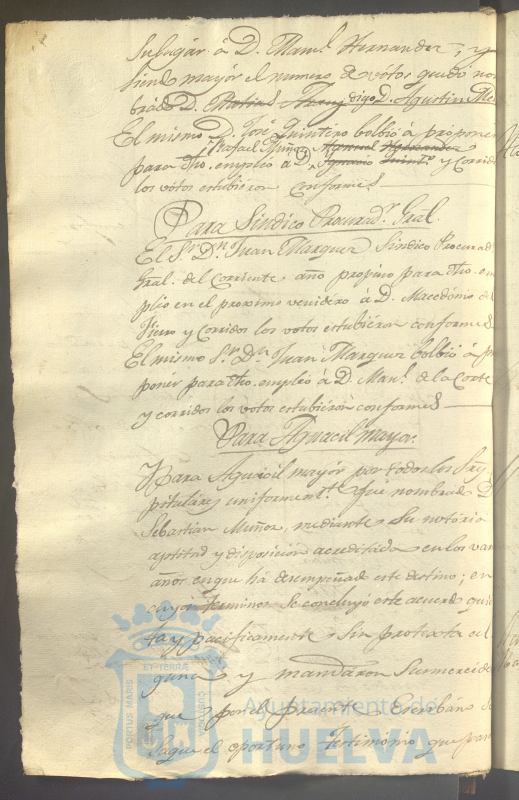 su lugar á D. Man.l Hernandez, y
siendo mayór el numero de vótos quedó nom
brado D. digo D. Agustin
El mismo D. José Quintero bolbió á proponer
para dho. empléo á D. Rafael Muñoz y corridos
los votos estubiéron conformes
Para Sindico Procurad.r Gral.
El S.r D.n Juan Marquez Sindico Procurad
Gral. del Corriente año propuso para dho. em
pléo en el proximo venidero á D. Macedónio del
Fierro y corridos los votos estubiéron conformes
El mismo S.r D.n Juan Marquez bolbió á pro
ponér para dho. empléo á D. Man.l de la Corte
y corridos los votos estubiéron conformes
Para Aguacil mayor.
Para Aguacil mayór por todos los
pitulares uniformem.te fué nombrado D
Sebastian Muñoz, mediante su notória
aptitud y disposición acreditada en los vari
años en que há desempeñado este destino; en
cuyos terminos se concluyó este acuerdo quie
ta y pacificamente sin protexta al
guna y mandáron sus mercedes
que por el presente Escribáno se
saque el oportuno Testimónio que para
PORTUS MARIS
ET TERRÆ
CUSTODIA
Ayuntamiento de
HUELVA